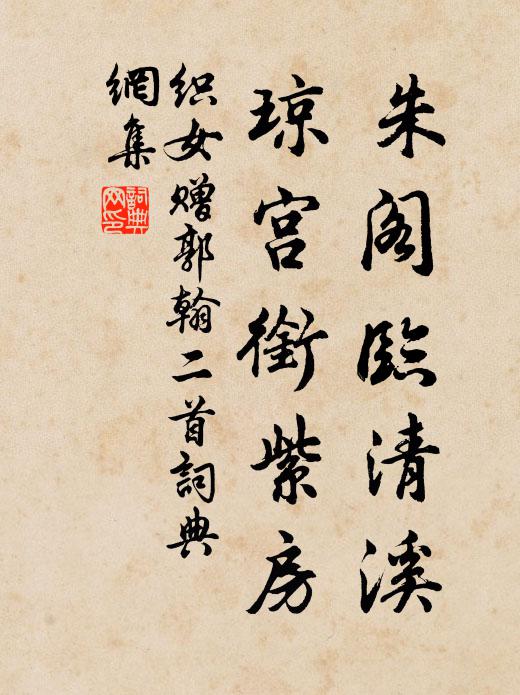 朱阁临清溪
琼宫銜紫房
织女赠郭翰二首詞典
網集
詞典网印